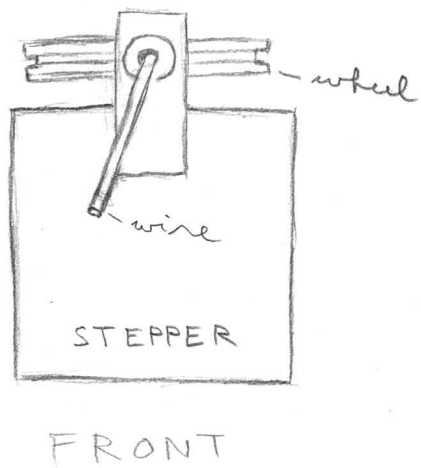 wheel
wire
STEPPER
FRONT